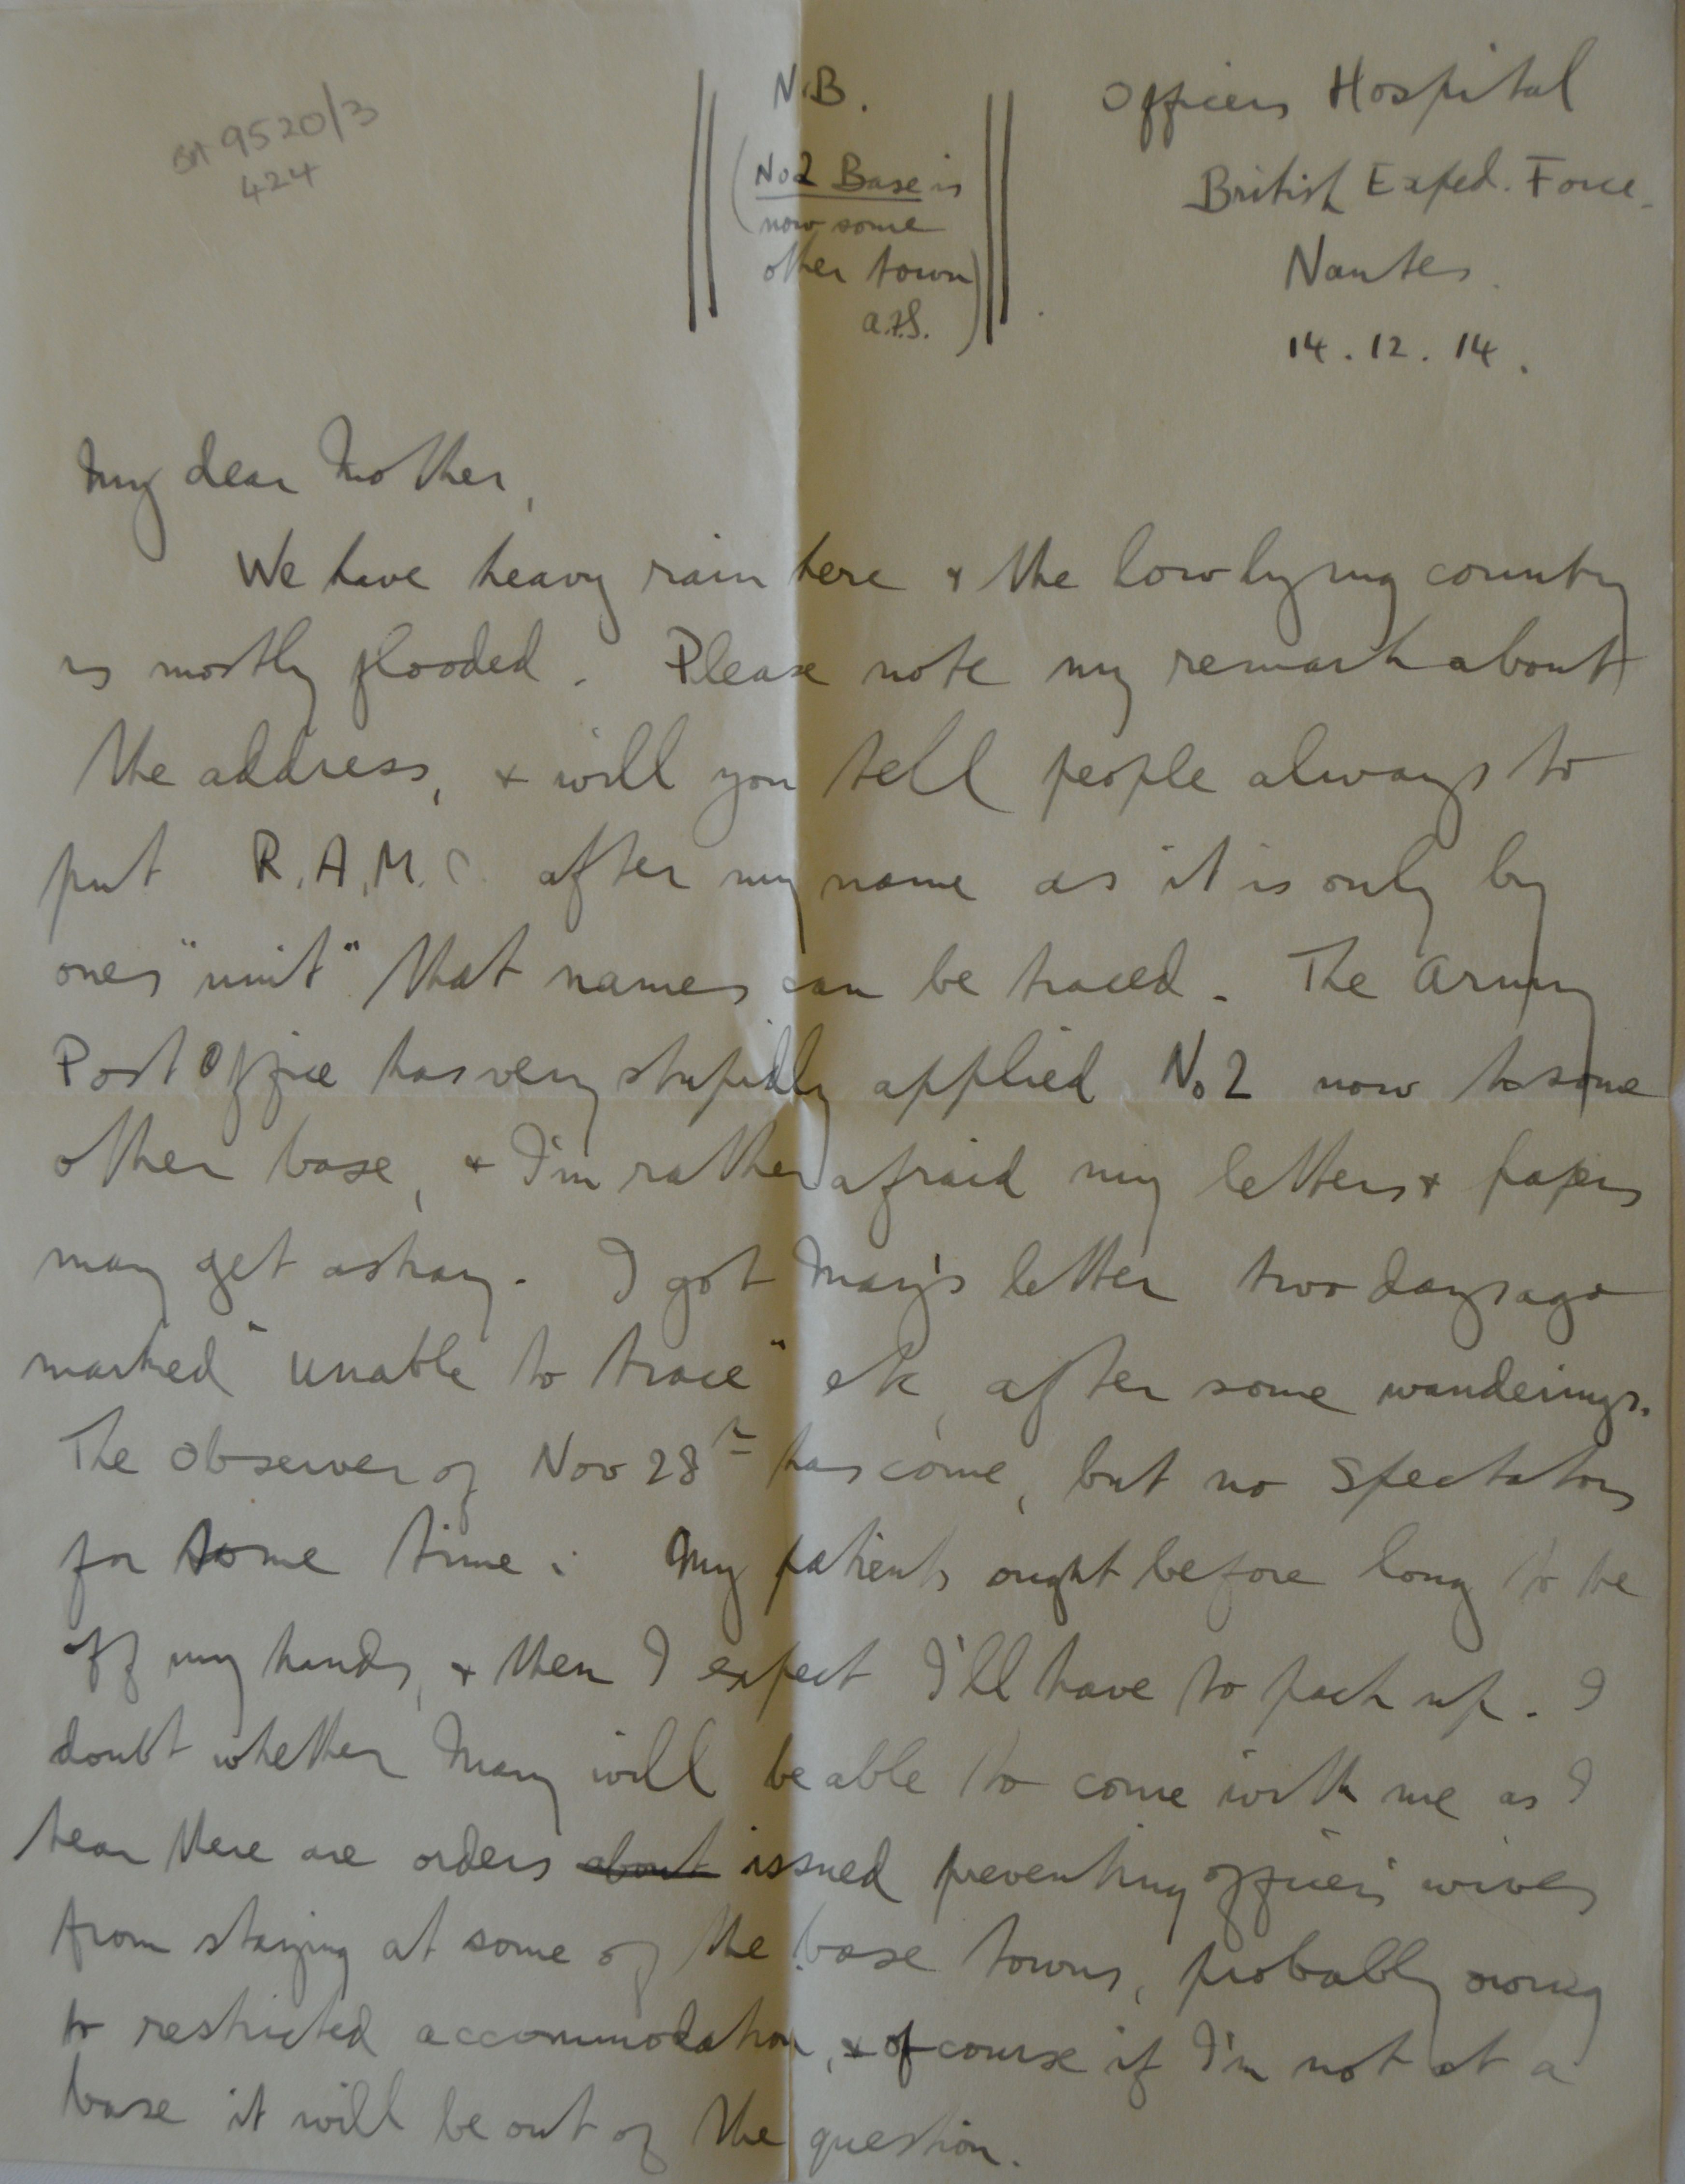 BA 9520/3
424
N.B.
(No 2 Base is
now some
other town)
Officers Hospital
British Exped. Force.
Nantes.
14.12.14.
My dear Mother,
We have heavy rain here & the low lying country
is mostly flooded. Please note my remark about
the address, & will you tell people always to
put R.A.M.C. after my name as it is only by
ones "unit" that names can be traced. The Army
Post Office has very stupidly applied No 2 now to some
other base, & I'm rather afraid my letters & papers
may get astray. I got Mary's letter two days ago
marked "unable to trace" etc, after some wanderings.
The Observer of Nov 28th has come, but no Spectators
for some time. My patients ought before long to be
off my hands, & then I expect I'll have to pack up. I
doubt whether Mary will be able to come with me as I
hear there are orders about issued preventing officers' wives
from staying at some of the base towns, probably owing
to restricted accommodation, & of course if I'm not at a
base it will be out of the question.